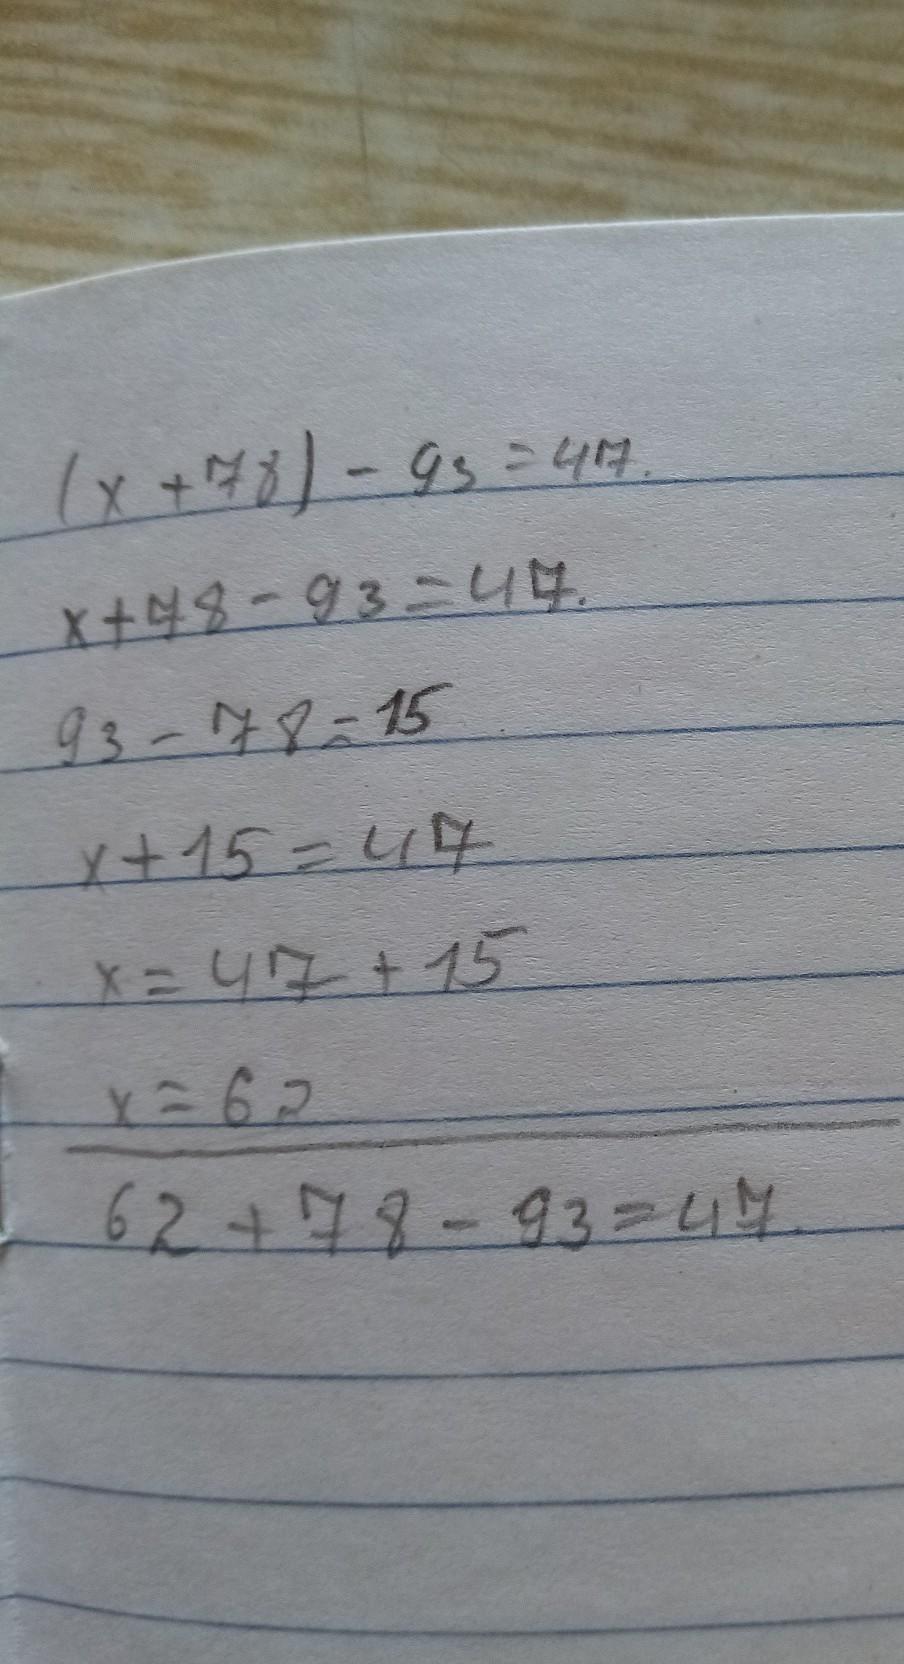 (x+78) - 93 = 47.
x+78 - 93 = 47.
93 - 78 = 15
x + 15 = 47
x = 47 + 15
x = 62
62 + 78 - 93 = 47.